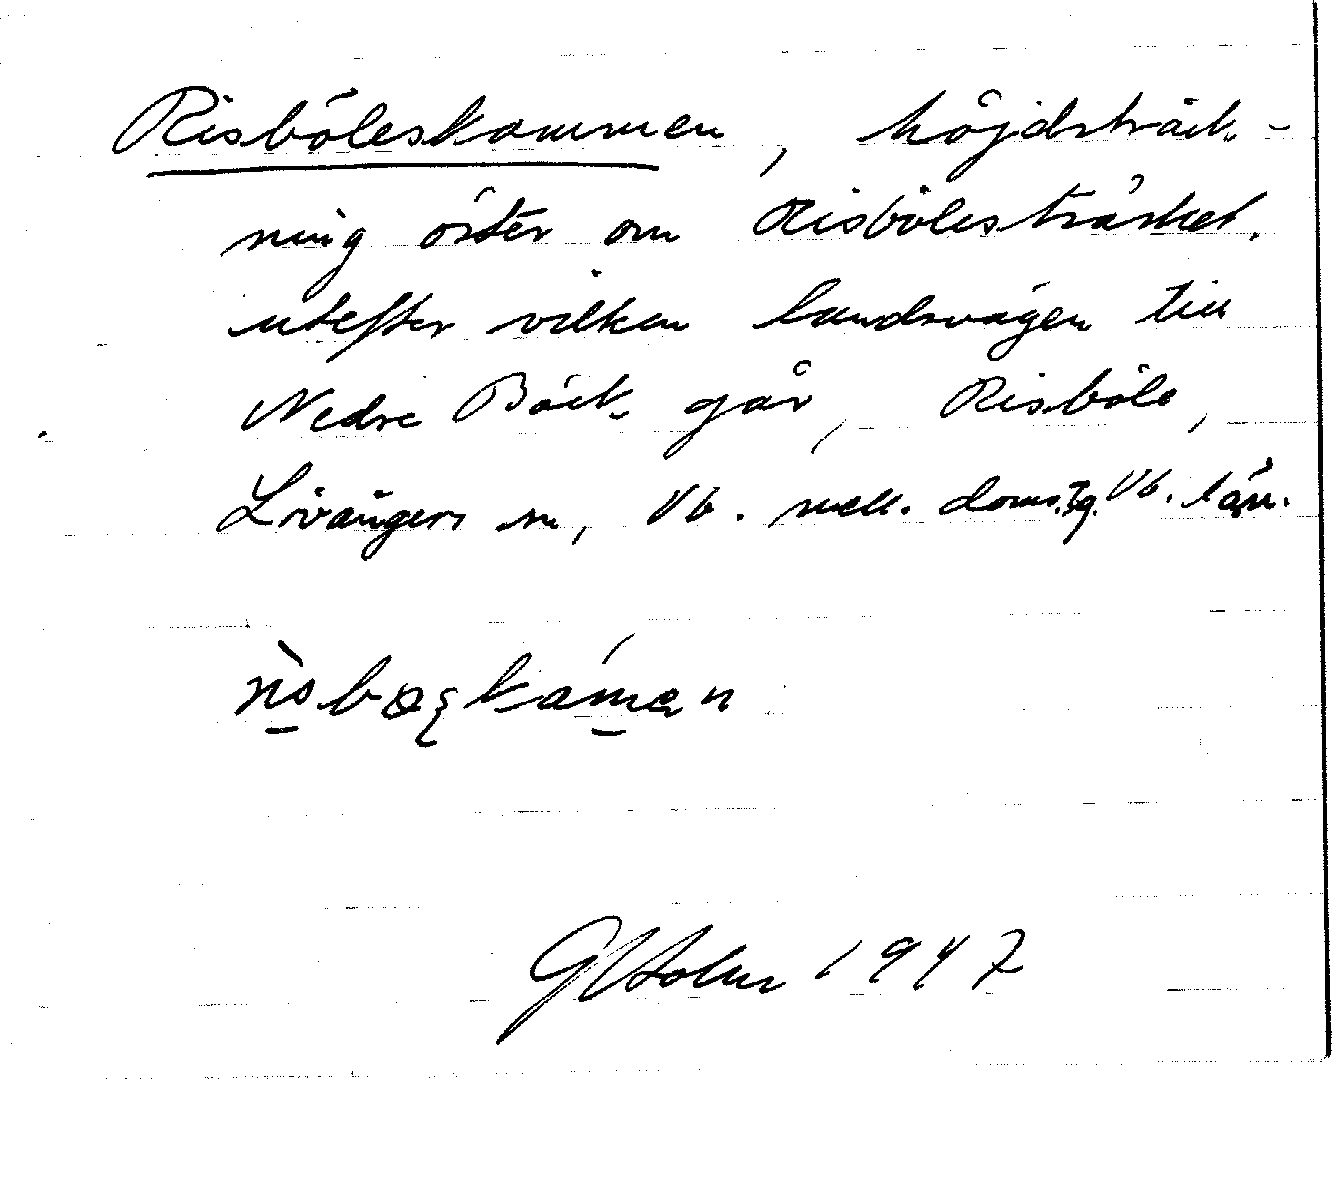 Risböleskammen, höjdsträck-
ning öster om Risbölesträsket,
utefter vilken landsvägen till
Nedre Bäck går, Risböle,
Lövångers sn, Vb. mell. doms.tg. Vb. län.
G Holm 1947